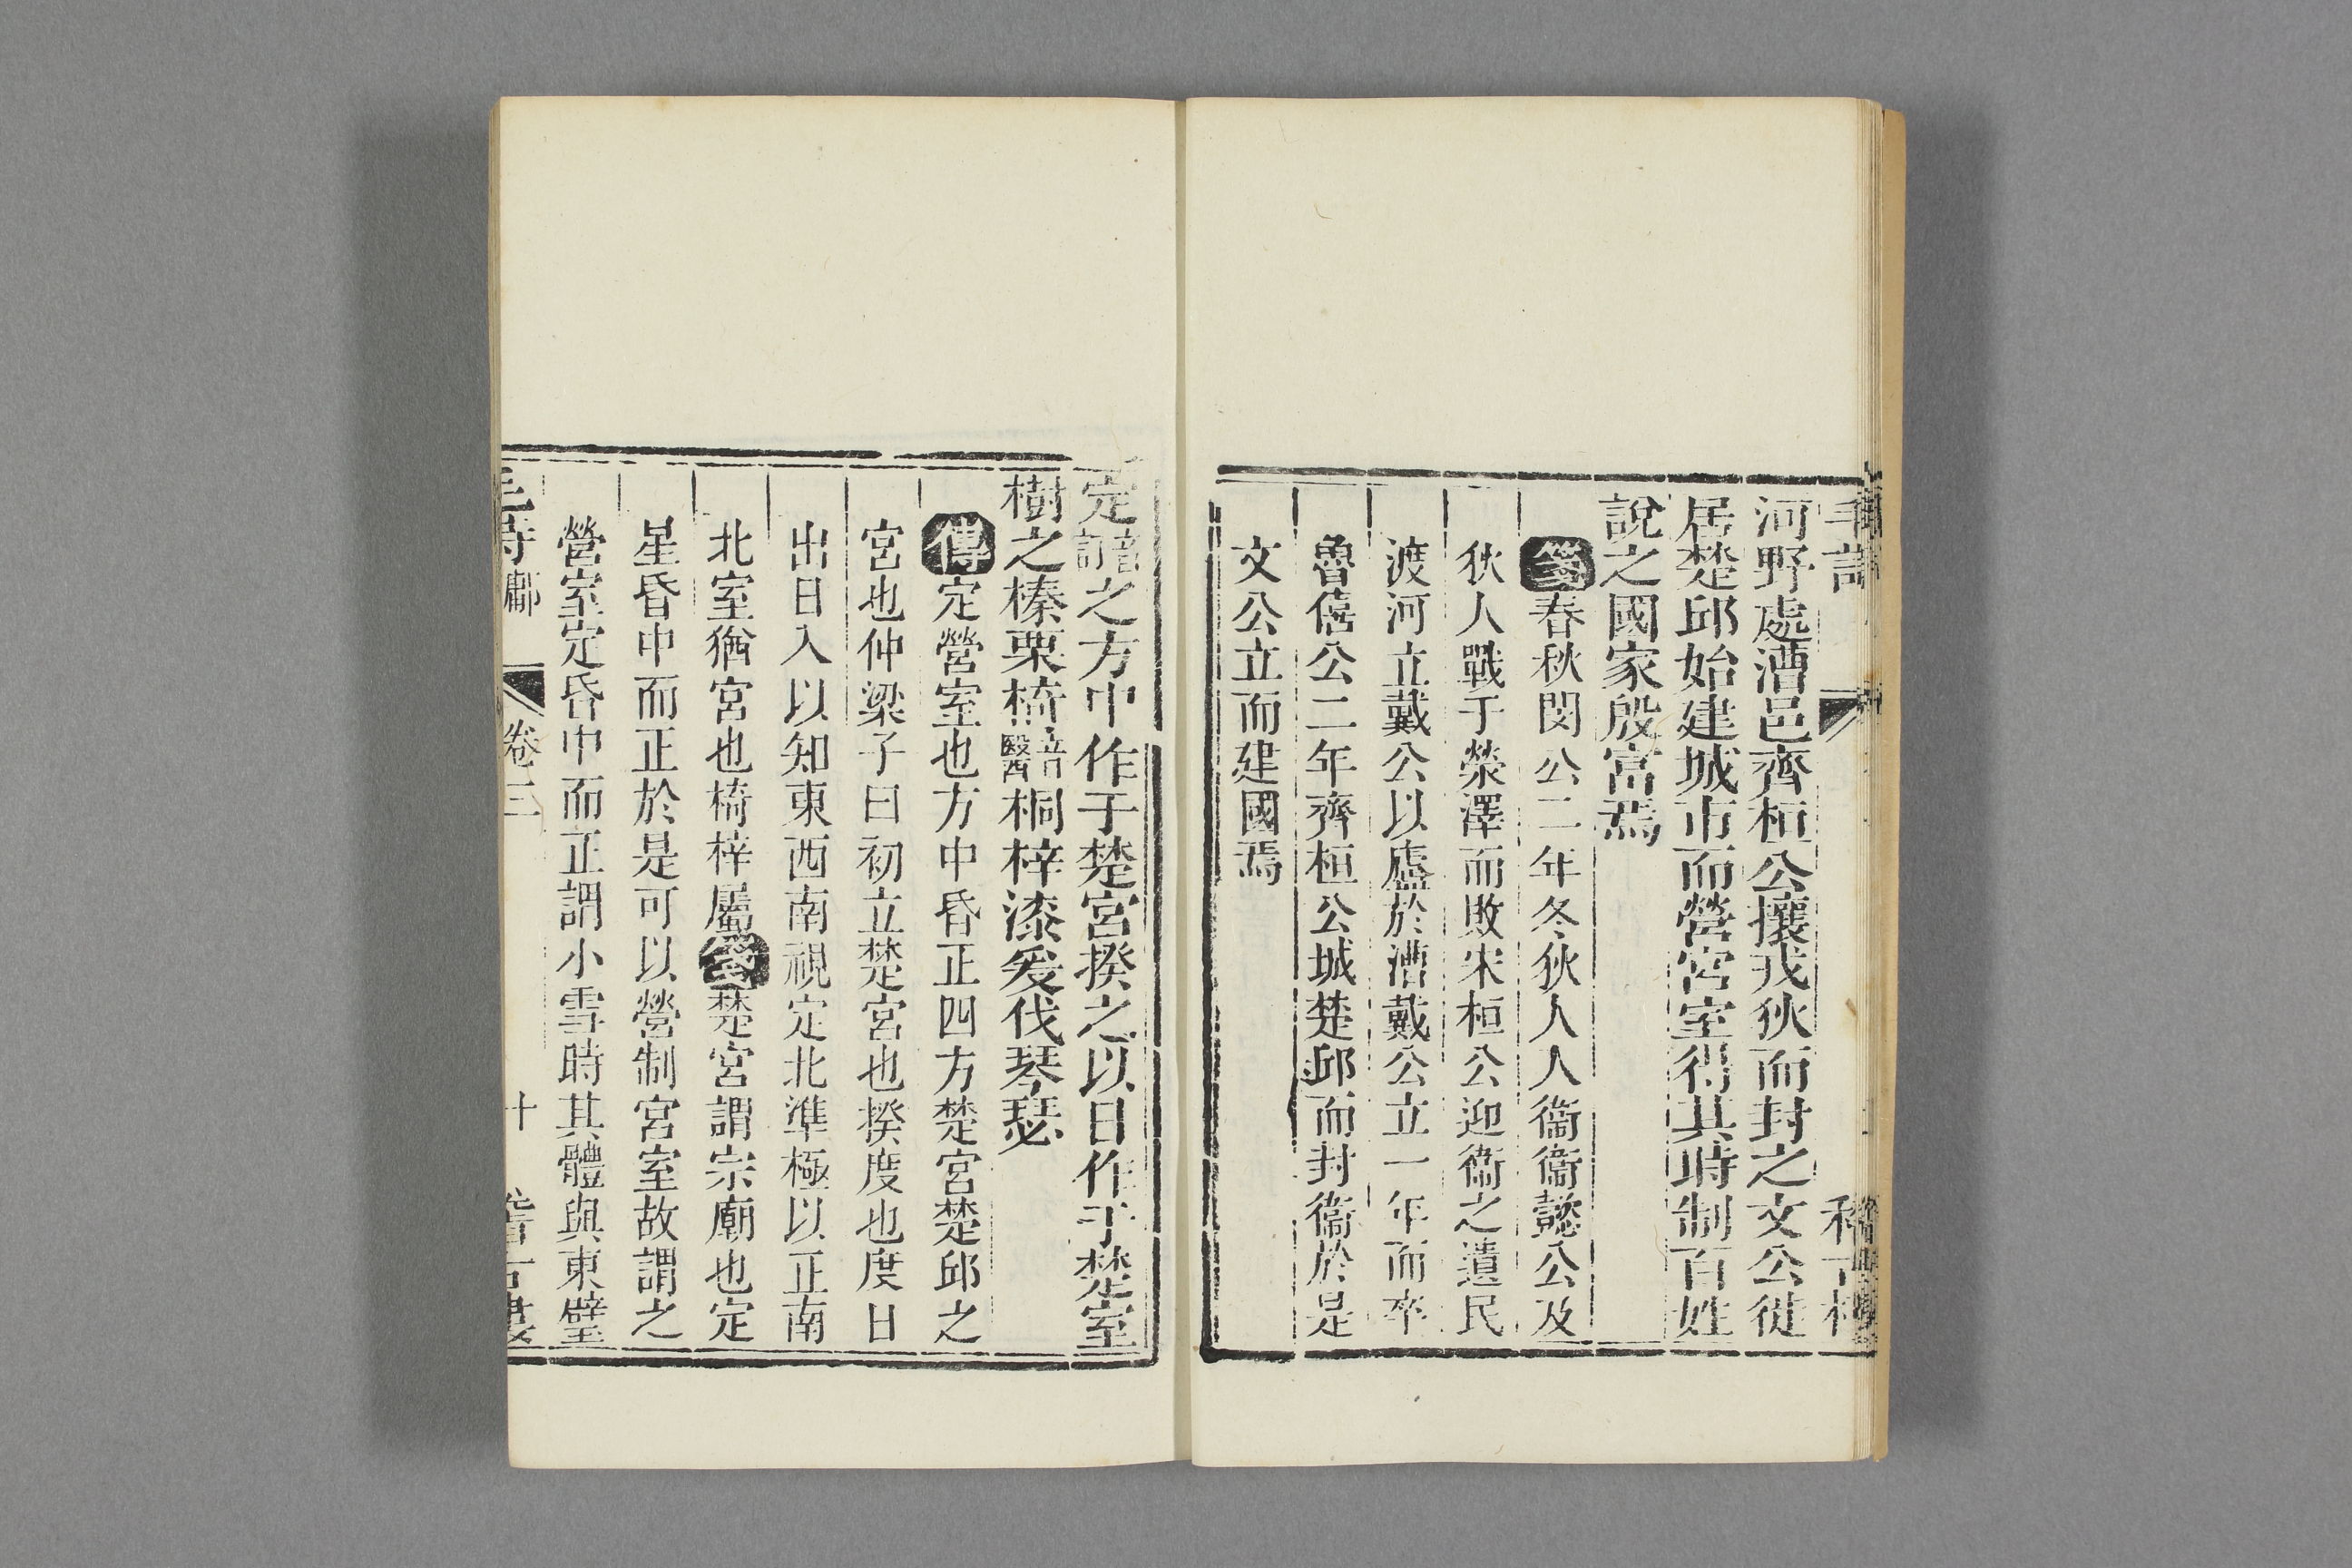 毛詩
河野處漕邑齊桓公攘戎狄而封之文公徙
居楚邱始建城市而營宮室得其時制百姓
說之國家殷富焉
箋春秋閔公二年冬狄人入衞衞懿公及
狄人戰于滎澤而敗宋桓公迎衞之遺民
渡河立戴公以廬於漕戴公立一年而卒
魯僖公二年齊桓公城楚邱而封衞於是
文公立而建國焉
定音訂之方中作于楚宮揆之以日作于楚室
樹之榛栗椅音醫桐梓漆爰伐琴瑟
傳定營室也方中昏正四方楚宮楚邱之
宮也仲梁子曰初立楚宮也揆度也度日
出日入以知東西南視定北準極以正南
北室猶宮也椅梓屬箋楚宮謂宗廟也定
星昏中而正於是可以營制宮室故謂之
營室定昏中而正謂小雪時其體與東壁
毛詩 鄘 卷三 十